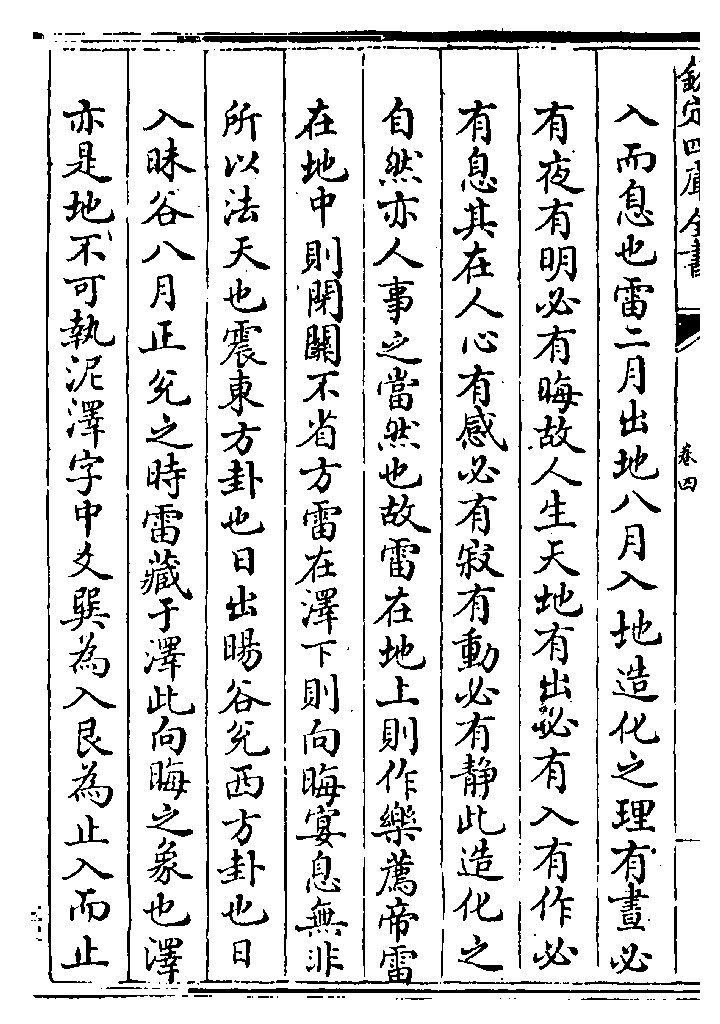 欽定四庫全書
卷四
入而息也雷二月出地八月入地造化之理有晝必
有夜有明必有晦故人生天地有出必有入有作必
有息其在人心有感必有寂有動必有靜此造化之
自然亦人事之當然也故雷在地上則作樂薦帝雷
在地中則閉關不省方雷在澤下則向晦宴息無非
所以法天也震東方卦也日出暘谷兌西方卦也日
入昧谷八月正兌之時雷藏于澤此向晦之象也澤
亦是地不可執泥澤字中爻巽為入艮為止入而止